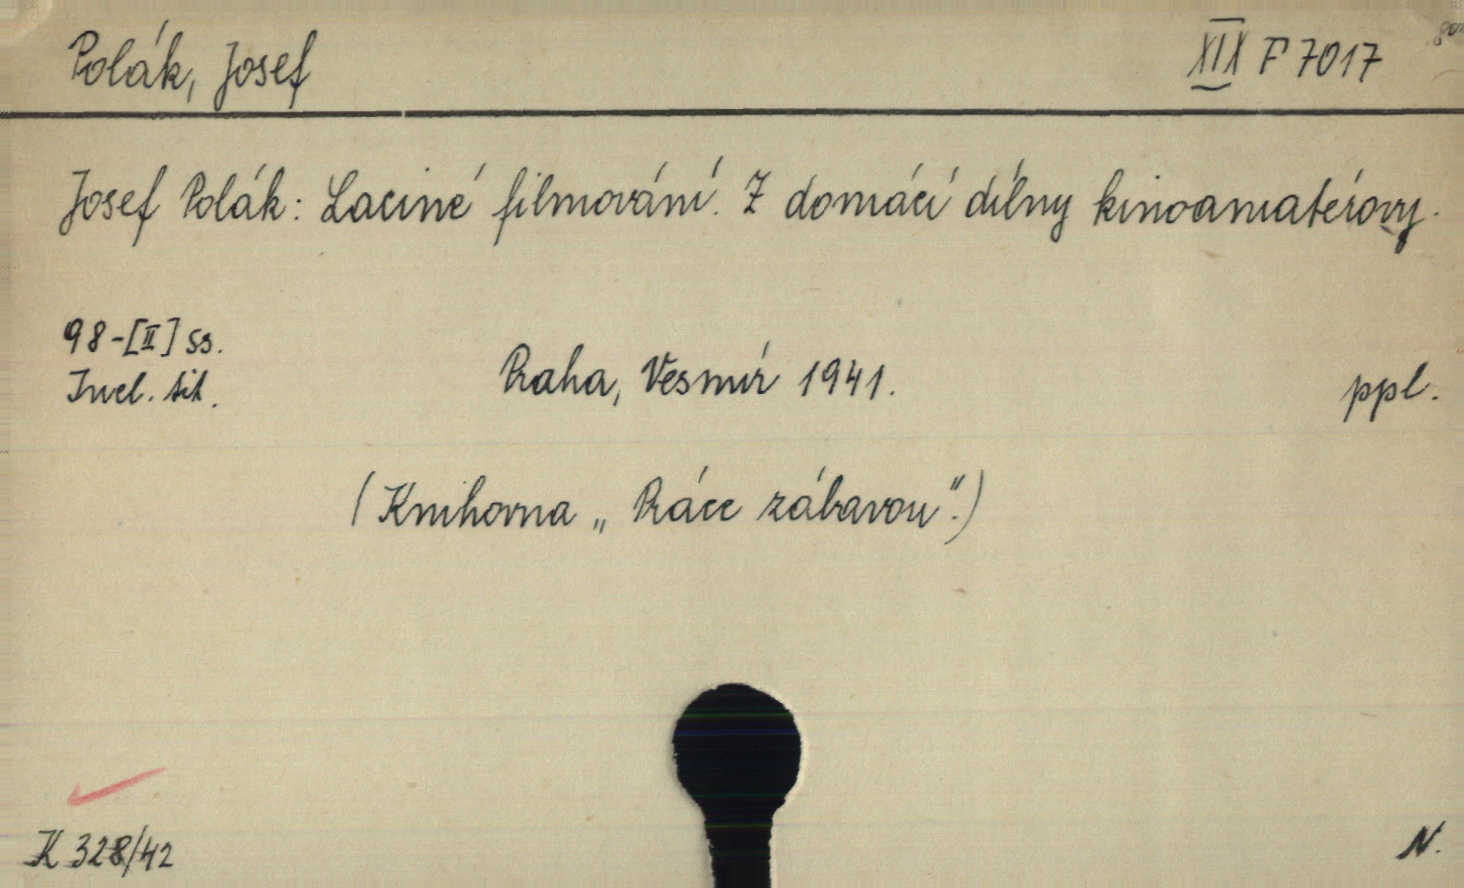 Polák, Josef
XIX F 7017
Josef Polák: Laciné filmování. Z domácí dílny kinoamatérovy.
98-[II] ss.
Incl. tit.
Praha, Vesmír 1941.
ppl.
(Knihovna „Práce zábavou“.)
K 328/42
N.